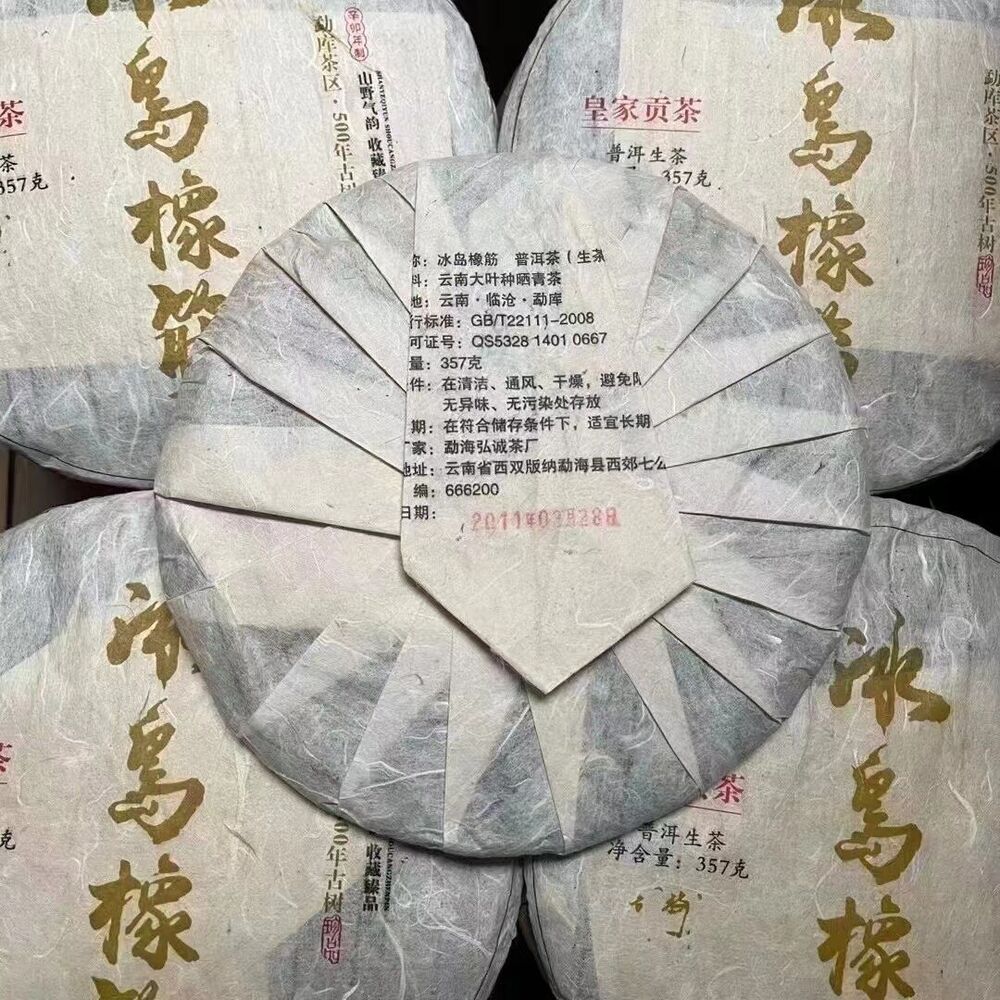 冰
岛
橡
筋
茶
茶
357克
辛卯年制
勐库茶区·500年古树
山野气韵 收藏臻
SHANYEQIYUN SHOUCANGZ
冰
岛
橡
皇家贡茶
普洱生茶
357克
勐库茶区·500年古树
珍品
称：冰岛橡筋 普洱茶（生茶
料：云南大叶种晒青茶
地：云南·临沧·勐库
行标准：GB/T22111-2008
可证号：QS5328 1401 0667
量：357克
件：在清洁、通风、干燥，避免阳
无异味、无污染处存放
期：在符合储存条件下，适宜长期
厂家：勐海弘诚茶厂
地址：云南省西双版纳勐海县西郊七公
编：666200
日期：
2011年03月28日
冰
岛
橡
茶
克
00年古树
珍品
收藏臻品
冰
岛
橡
茶
普洱生茶
净含量：357克
古树